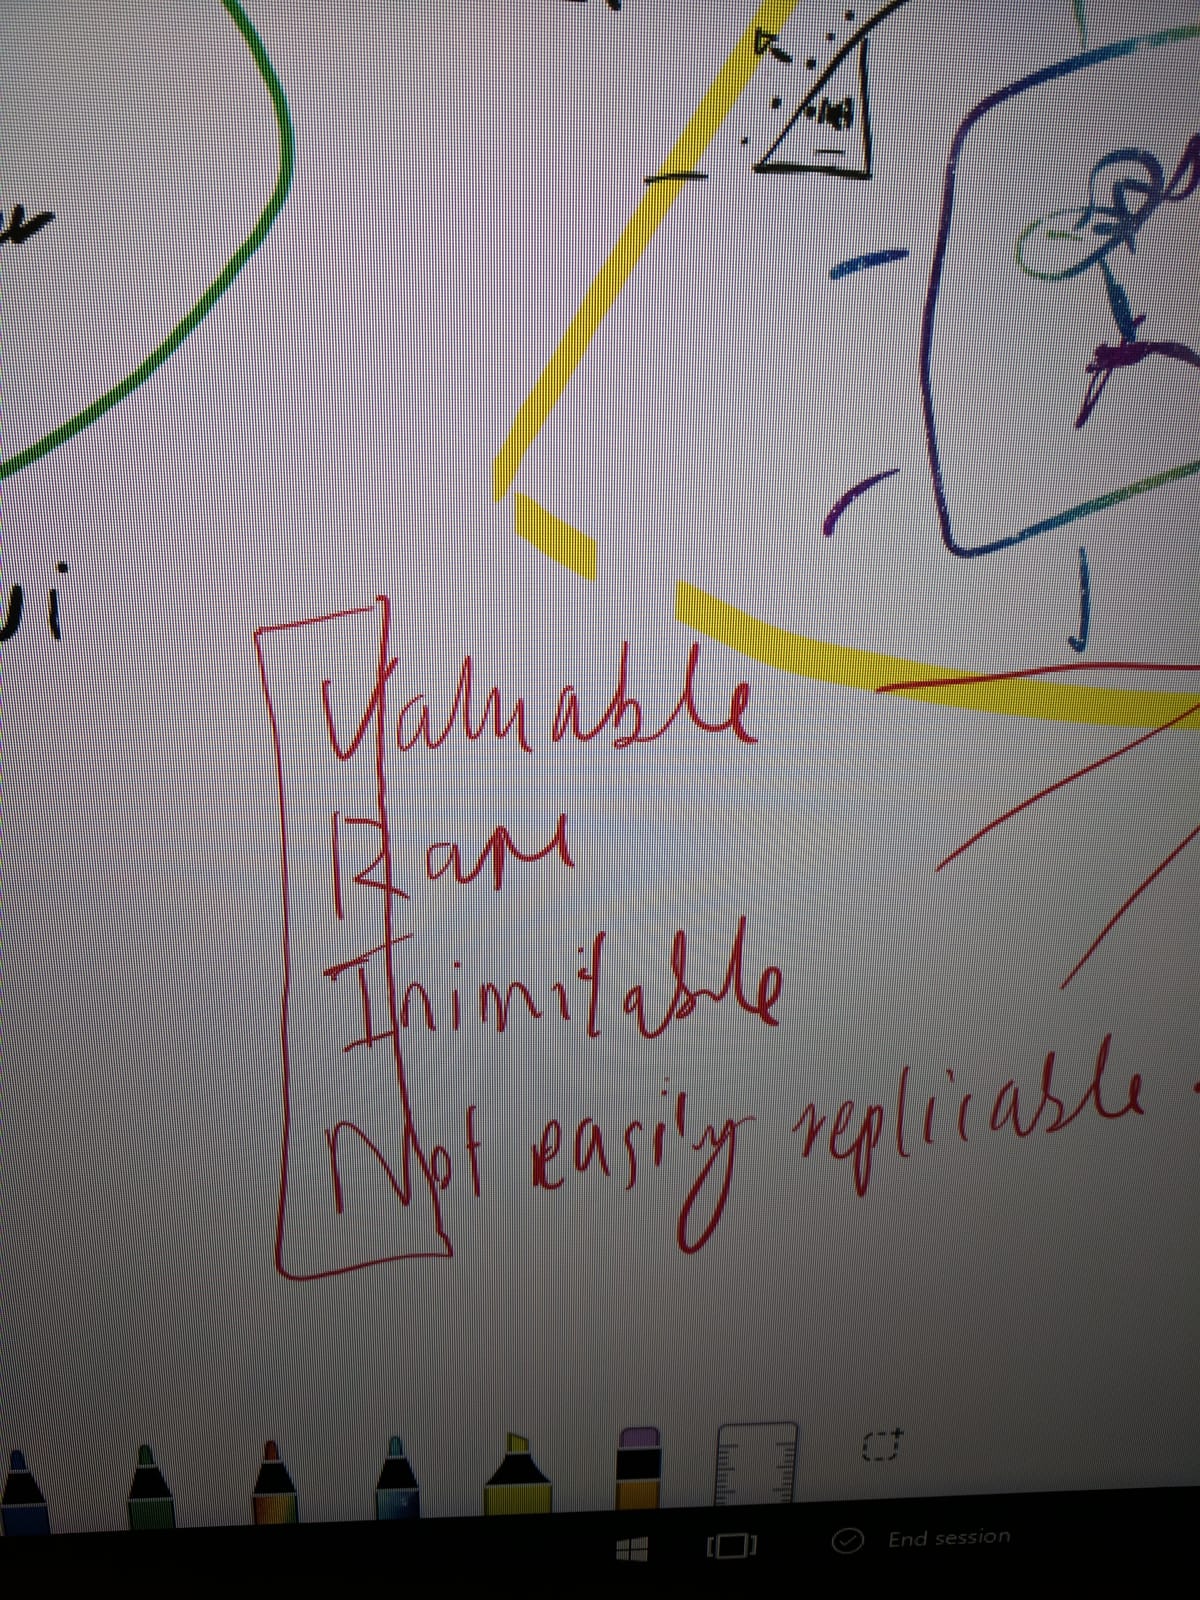 Valuable
Rare
Inimitable
Not easily replicable
End session